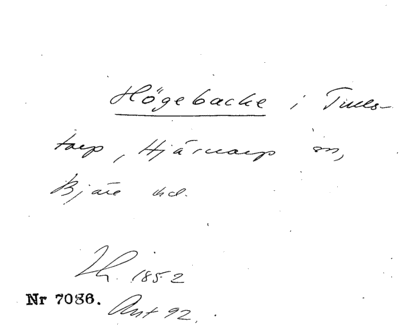 Högebacke i Tuels-
torp, Hjärnarp sn,
Bjäre hd.
1852
Nr 7086. Ant 92.